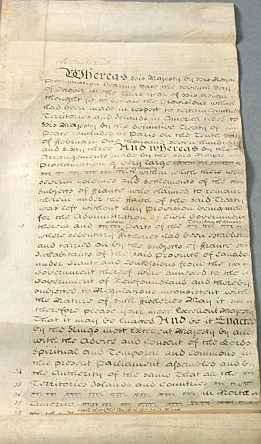 Whereas his Majesty by his Royal
Proclamation bearing date the seventh day
of October in the third year of his Reign
thought fit to declare the Provisions which
had been made in respect to certain Countries
Territories and Islands in America ceded to
his Majesty by the definitive Treaty of
Peace concluded at Paris on the Tenth day
of February One thousand seven hundred
and sixty three And whereas by the
Arrangements made by the said Royal
Proclamation a very large
within which there were
several Colonies and Settlements of the
Subjects of France who claimed to remain
therein under the Faith of the said Treaty
was left without any Provision being made
for the Administration of Civil Government
therein and Parts of the
where sedentary Fisheries had been established
and carried on by the Subjects of France
Inhabitants of the said Province of Canada
under Grants and Concessions from the
Government thereof were annexed to the
Government of Newfoundland and thereby
subjected to Regulations inconsistent with
the Nature of such Fisheries May it
therefore please your most Excellent Majesty
that it may be Enacted And be it Enacted
by the Kings most Excellent Majesty by and
with the Advice and Consent of the Lords
Spiritual and Temporal and Commons in
this present Parliament assembled and by
the Authority of the same That all the
Territories Islands and Countries
in North
America